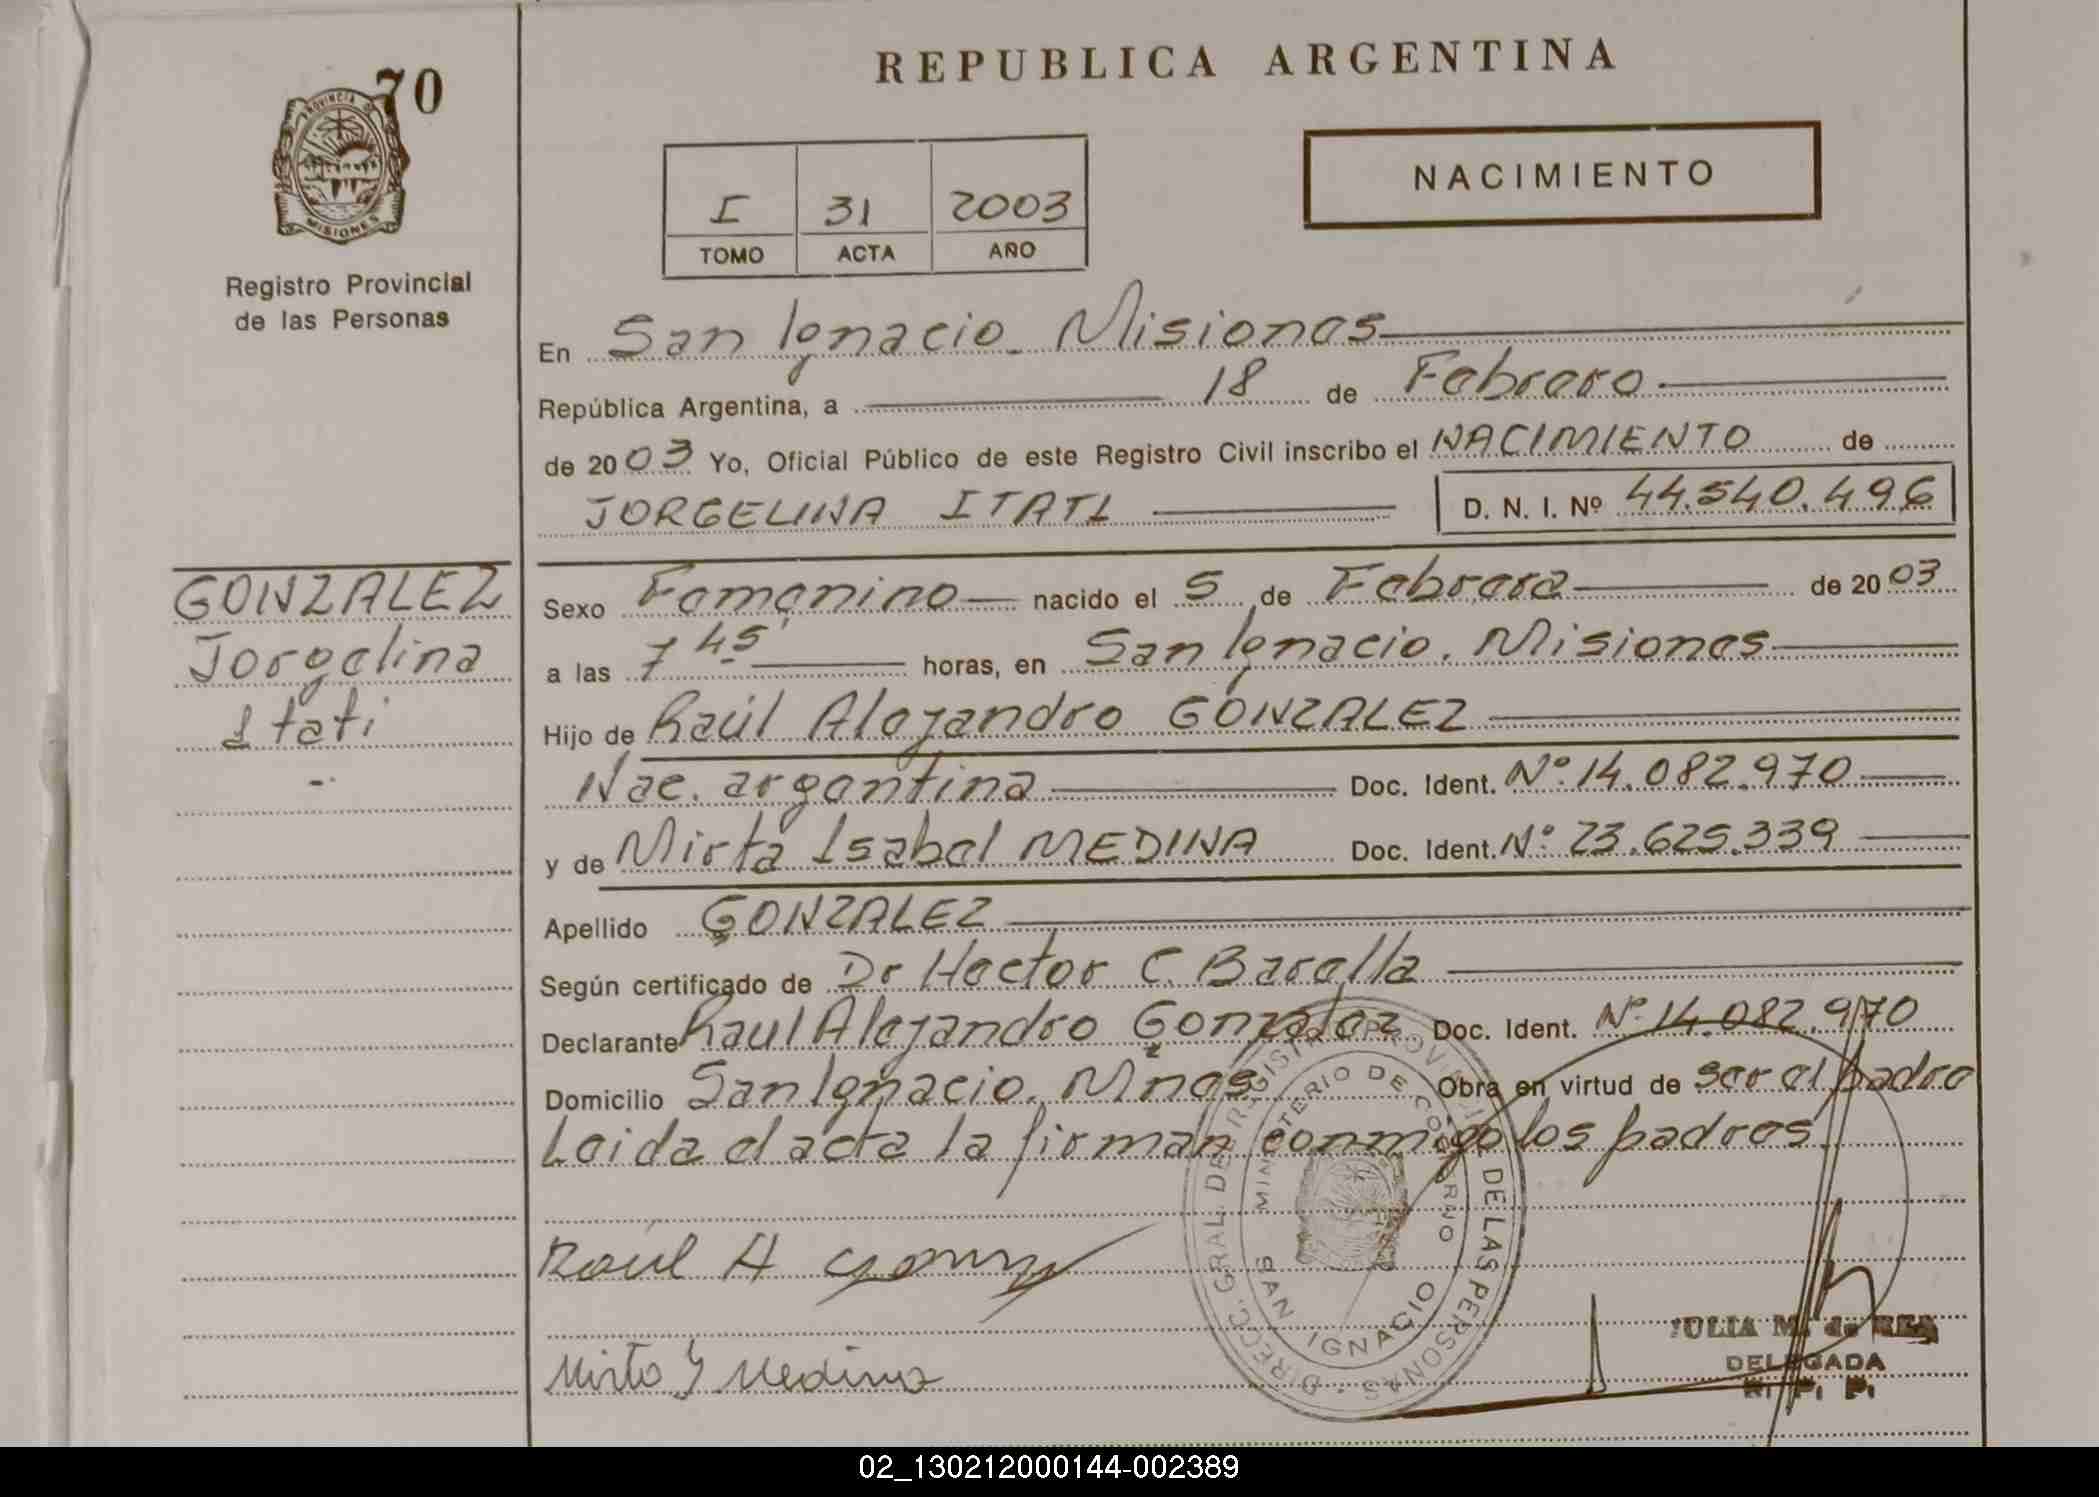 70
PROVINCIA DE
MISIONES
Registro Provincial
de las Personas
REPUBLICA ARGENTINA
NACIMIENTO
I 31 2003
TOMO ACTA AÑO
En San Ignacio. Misiones
República Argentina, a 18 de Febrero
de 2003 Yo, Oficial Público de este Registro Civil inscribo el NACIMIENTO de
JORGELINA ITATI D. N. I. Nº 44.540.496
GONZALEZ
Jorgelina
Itati
Sexo Femenino nacido el 5 de Febrero de 2003
a las 7 45' horas, en San Ignacio. Misiones
Hijo de Raúl Alejandro GONZALEZ
Nac. argentina Doc. Ident. Nº 14.082.970
y de Mirta Isabel MEDINA Doc. Ident. Nº 23.625.339
Apellido GONZALEZ
Según certificado de Dr Hector C. Barella
Declarante Raul Alejandro Gonzalez Doc. Ident. Nº 14.082.970
Domicilio San Ignacio. Mnes Obra en virtud de ser el padre
Leida el acta la firman conmigo los padres
DIRECC. GRAL. DEL REGISTRO PROVINCIAL DE LAS PERSONAS
MINISTERIO DE GOBIERNO
SAN IGNACIO
Raul A Gonz
Mirta Y Medina
JULIA M. de REA
DELEGADA
R. P. P.
02_130212000144-002389